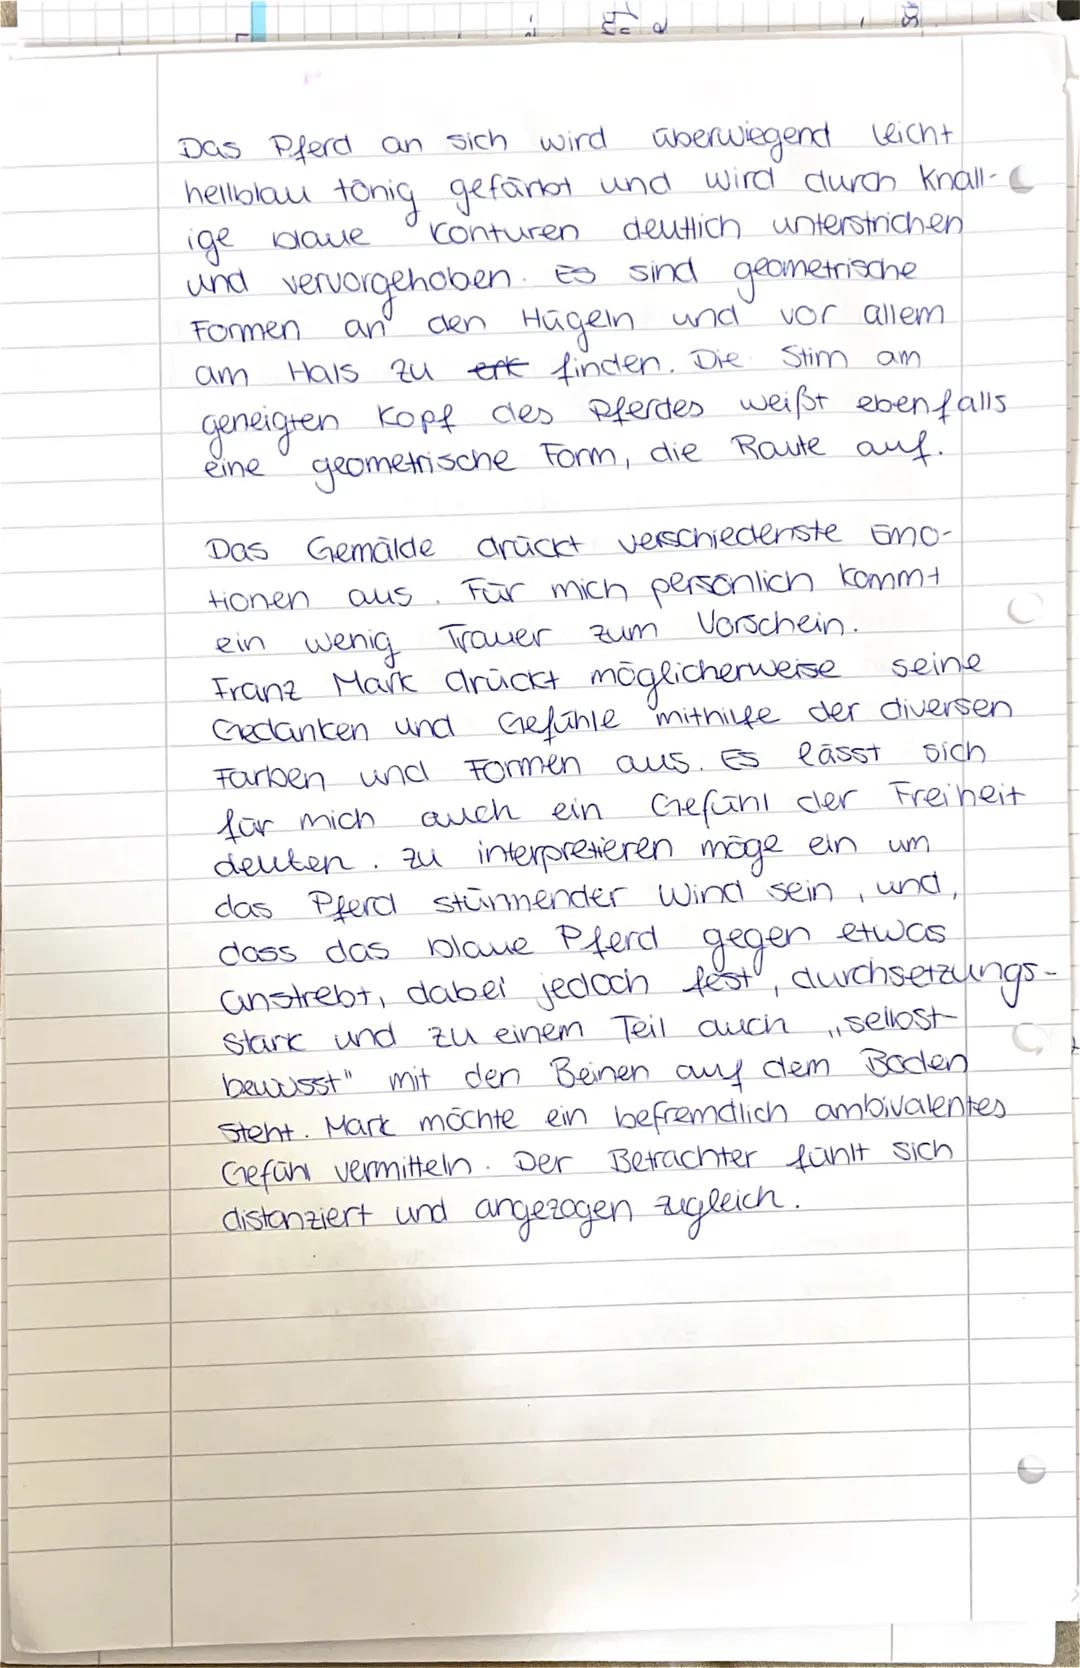 Das Pferd an sich wird überwiegend leicht
hellblau tönig gefärbt und wird durch Knall-
ige blaue Konturen deutlich unterstrichen
und vervorgehoben. Es sind geometrische
Formen an den Hügeln und vor allem
am Hals zu finden. Die Stirn am
geneigten Kopf des Pferdes weißt ebenfalls
eine geometrische Form, die Raute auf.
Das Gemälde drückt verschiedenste Emo-
tionen aus. Für mich persönlich kommt
ein wenig Trauer zum Vorschein.
Franz Mark drückt möglicherweise seine
Gedanken und Gefühle mithilfe der diversen
Farben und Formen aus. Es lässt sich
für mich auch ein Gefühl der Freiheit
deuten. Zu interpretieren möge ein um
das Pferd stürmender Wind sein, und,
dass das blaue Pferd gegen etwas
anstrebt, dabei jedoch fest, durchsetzungs-
stark und zu einem Teil auch „selbst-
bewusst" mit den Beinen auf dem Boden
steht. Mark möchte ein befremdlich ambivalentes
Gefühl vermitteln. Der Betrachter fühlt sich
distanziert und angezogen zugleich.